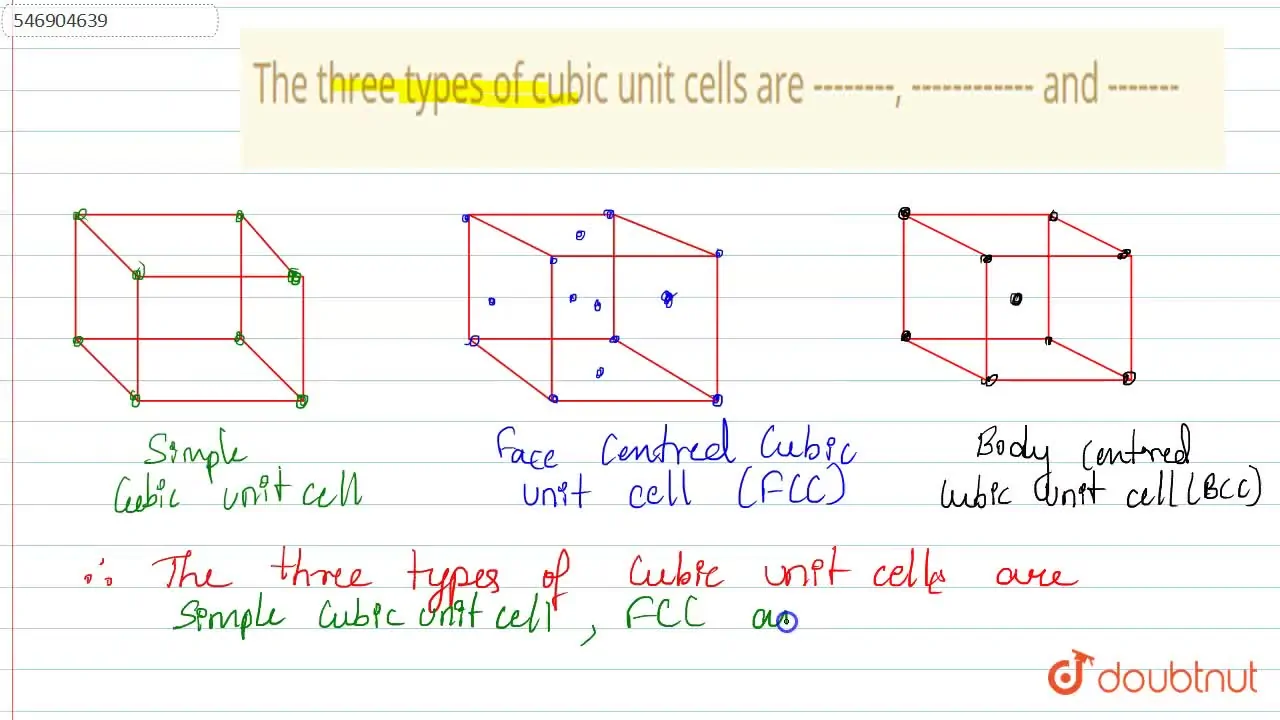 546904639
The three types of cubic unit cells are --------, ------------ and -------
Simple
Cubic unit cell
Face Centred Cubic
unit cell (FCC)
Body Centered
Cubic unit cell (BCC)
∴ The three types of Cubic unit cells are
Simple Cubic unit cell, FCC an
doubtnut